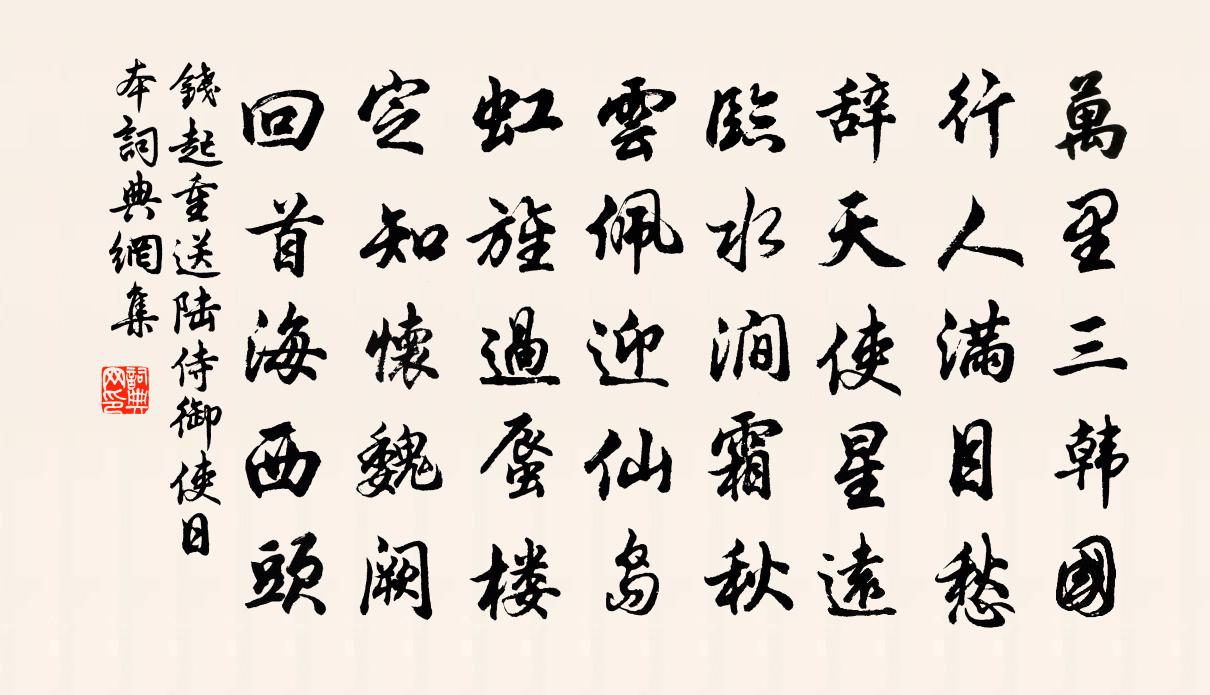 萬里三韩國
行人滿目愁
辞天使星遠
臨水澗霜秋
雲佩迎仙島
虹旌過蜃楼
定知懷魏阙
回首海西頭
錢起重送陆侍御使日
本詞典網集
詞典网印